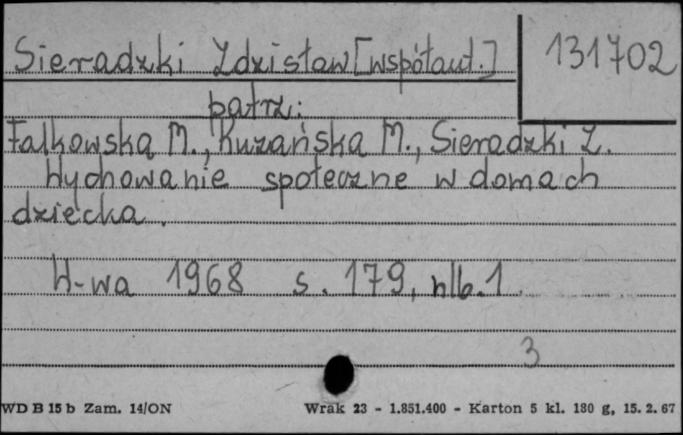 Sieradzki Zdzisław [współaut.]
131702
patrz:
Falkowska M., Kuzańska M., Sieradzki Z.
Wychowanie społeczne w domach
dziecka.
W-wa 1968 s. 179, nlb. 1
3
WD B 15 b Zam. 14/ON
Wrak 23 - 1.851.400 - Karton 5 kl. 180 g, 15. 2. 67